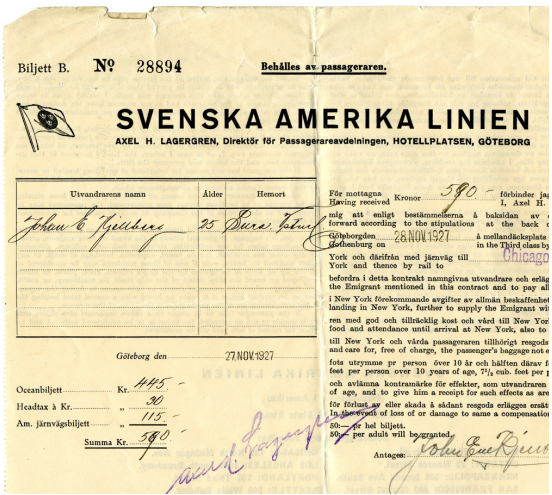 Biljett B. Nº 28894
Behålles av passageraren.
SVENSKA AMERIKA LINIEN
AXEL H. LAGERGREN, Direktör för Passagerareavdelningen, HOTELLPLATSEN, GÖTEBORG
Utvandrarens namn Ålder Hemort
Johan E Kjellberg 25 Sura,
Göteborg den 27. NOV. 1927
Oceanbiljett Kr. 445.-
Headtax à Kr. „ 30
Am. järnvägsbiljett „ 115.-
Summa Kr. 590.-
Axel H. Lagergren
För mottagna Kronor 590.- förbinder jag
Having received I, Axel H.
mig att enligt bestämmelserna å baksidan av
forward according to the stipulations at the back
Göteborg den 28. NOV. 1927 å mellandäcksplats
Gothenburg on in the Third class by
York och därifrån med järnväg till Chicago
York and thence by rail to
befordra i detta kontrakt namngivna utvandrare och erläg
the Emigrant mentioned in this contract and to pay all
i New York förekommande avgifter av allmän beskaffenhet
landing in New York, further to supply the Emigrant with
ren med god och tillräcklig kost och vård till New York
food and attendance until arrival at New York, also to
till New York och vårda passageraren tillhörigt resgods
and care for, free of charge, the passenger's baggage not
fots utrymme pr person över 10 år och hälften därav
feet per person over 10 years of age, 7½ cub. feet per
och avlämna kontramärke för effekter, som utvandraren
of age, and to give him a receipt for such effects as are
för förlust av eller skada å sådant resgods erlägges ersätt
In the event of loss or damage to same a compensation
50:— pr hel biljett.
50:— per adult will be granted.
Antages: John Eric